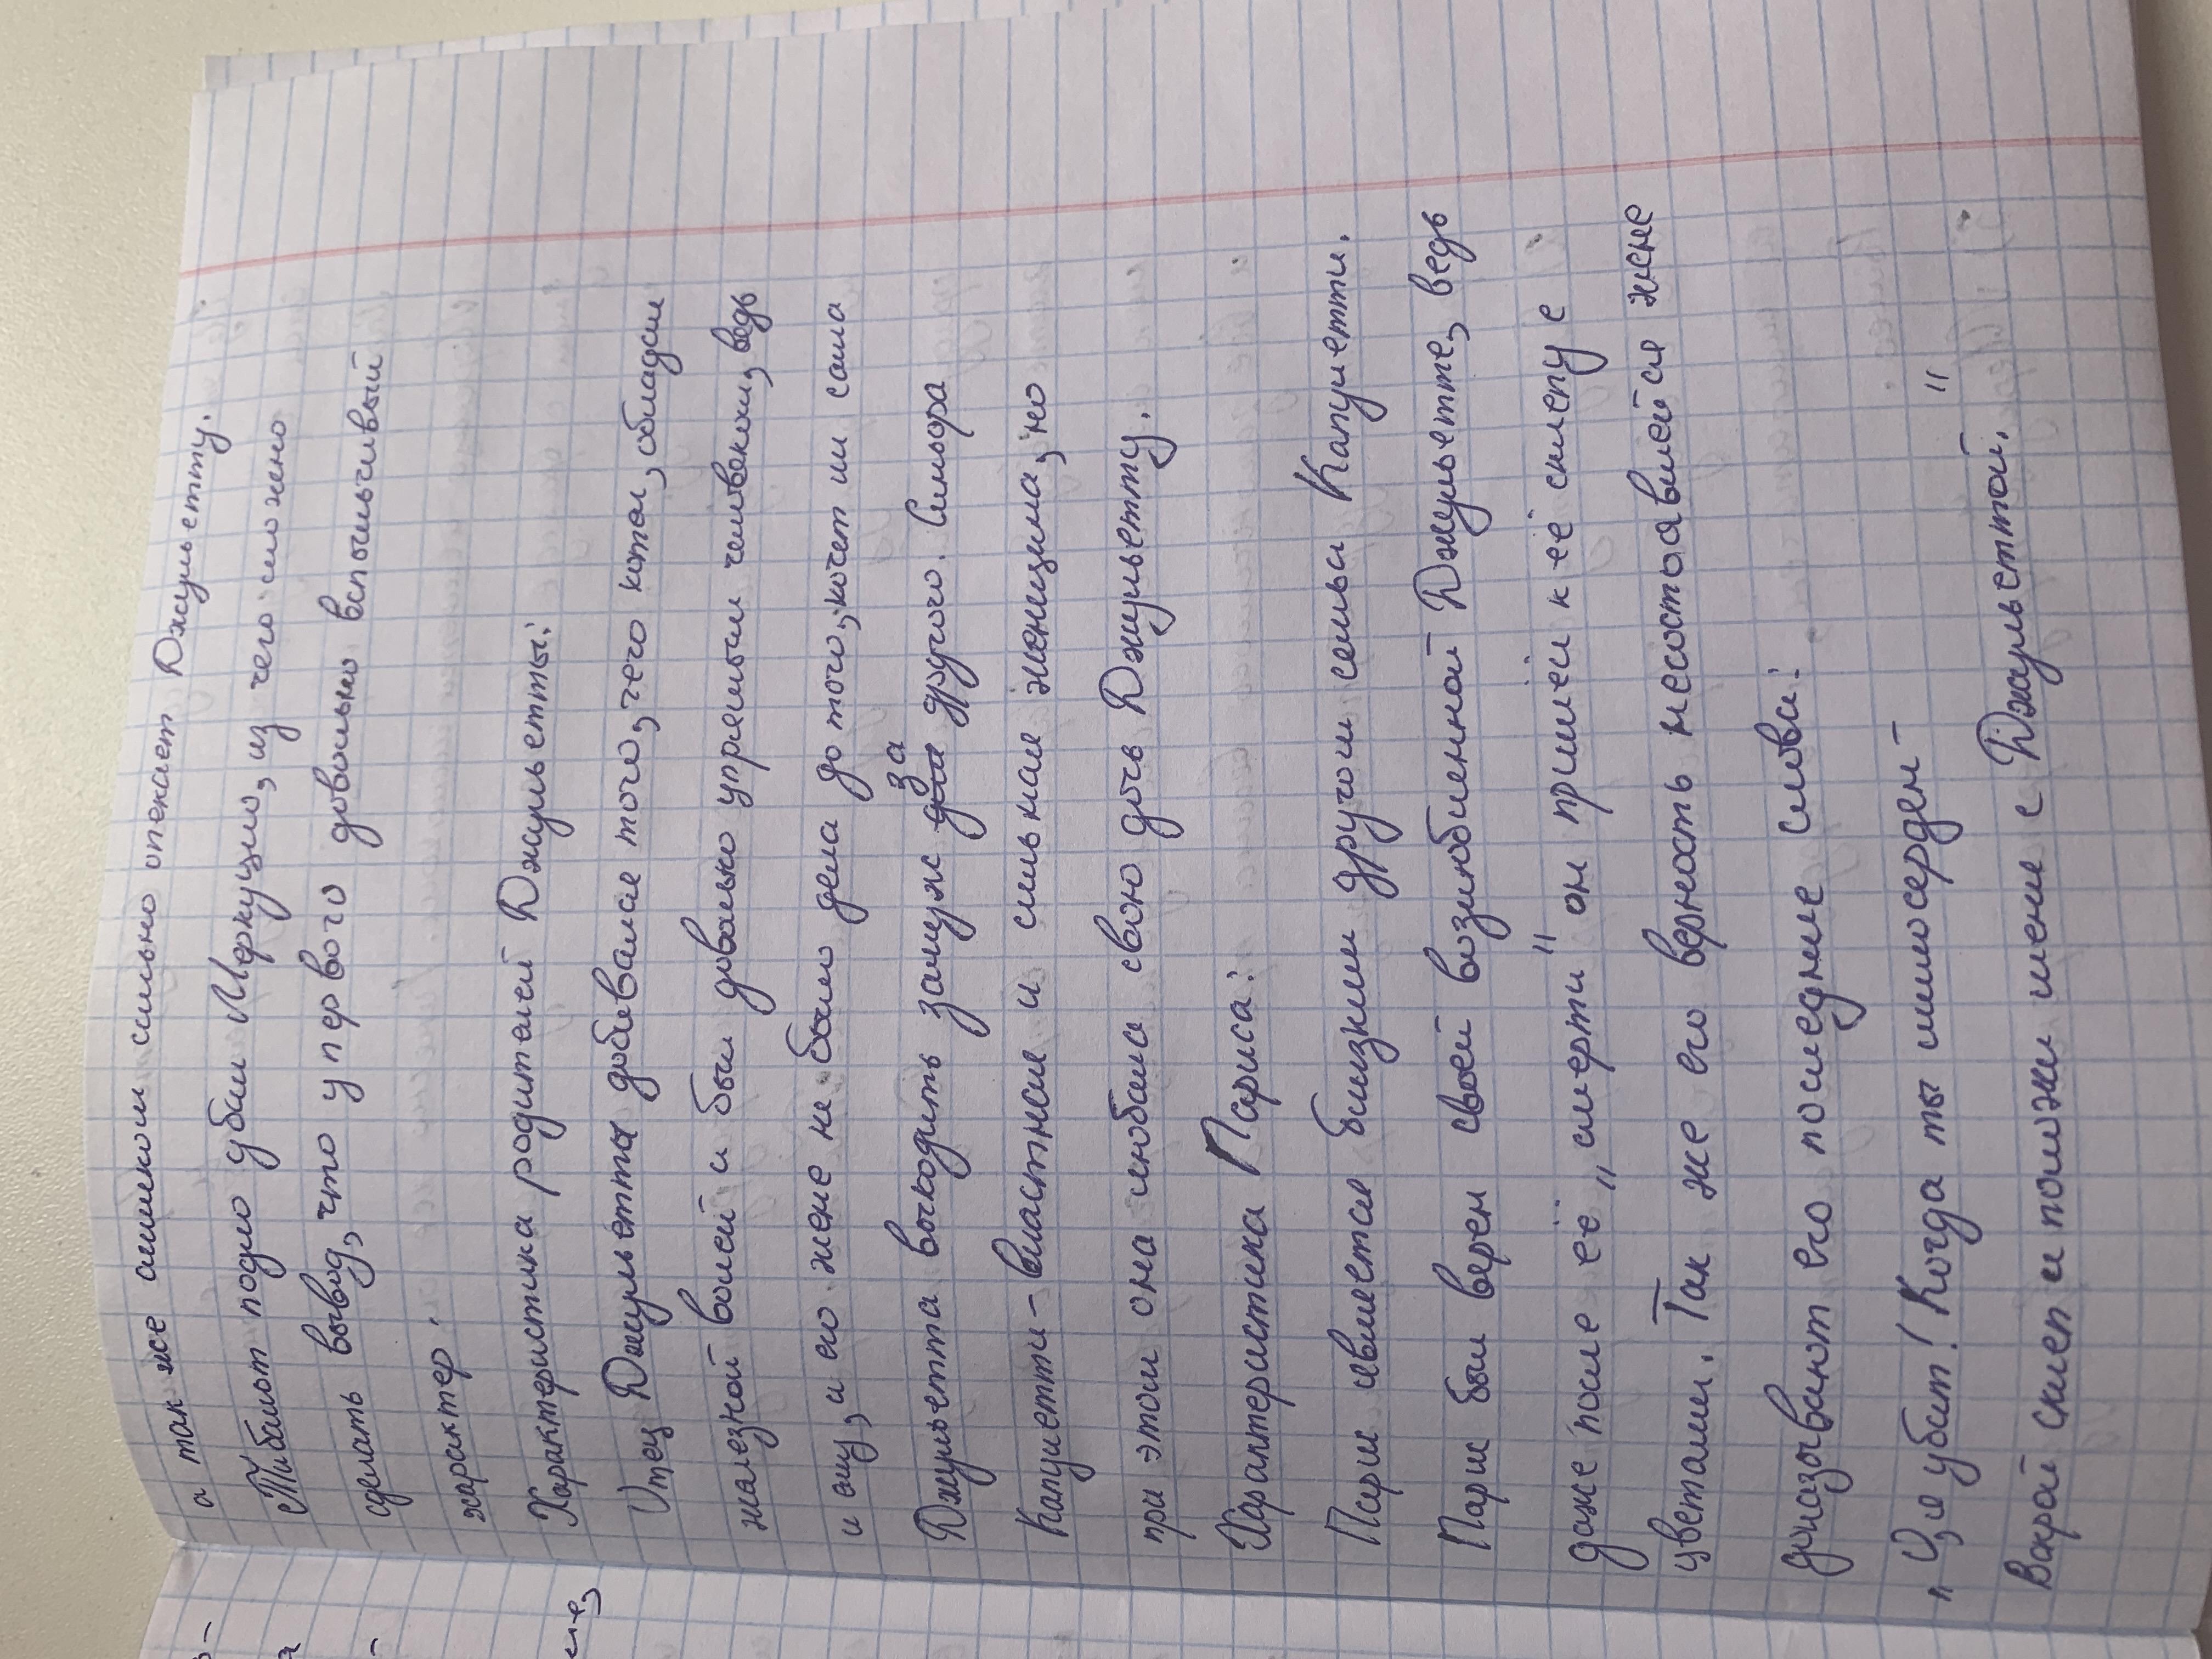 а так же слишком сильно опекает Джульетту.
Тибальт подло убил Меркуцио, из чего можно
сделать вывод, что у первого довольно вспыльчивый
характер.
Характеристика родителей Джульетты:
Отец Джульетты добивался того, чего хотел, обладал
железной волей и был довольно упрямым человеком, ведь
и ему, и его жене не было дела до того, хочет ли сама
Джульетта выходить замуж за другого. Синьора
Капулетти - властная и сильная женщина, но
при этом она любила свою дочь Джульетту.
Характеристика Париса:
Парис является близким другом семьи Капулетти.
Парис был верен своей возлюбленной Джульетте, ведь
даже после её „смерти" он пришёл к её склепу с
цветами. Так же его верность несостоявшейся жене
доказывают его последние слова:
„Ия убит! Когда ты милосерден -
Вскрой склеп и положи меня с Джульеттой. "